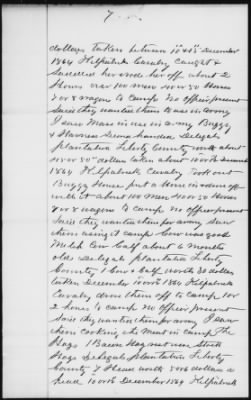 7
dollars taken between 10 & 15 December
1864 Kilpatrick Cavalry Caught &
Saddled her rode her off about 2
Hours over 100 men 40 or 50 Horses
7 or 8 wagons to Camp No officer present
Said they wanted them to use in army
I saw Mare in use in army Buggy
& Harness Second handed Delegal
plantation Liberty County worth about
45 or 50 dollars taken about 10 or 15 December
1864 Kilpatrick Cavalry Took out
Buggy House put a Horse in drove off
with it about 100 men 40 or 50 Horses
7 or 8 wagons to Camp no officer present
Said they wanted them for army Saw
them using it camp Cow was good
Milch Cow Calf about 6 months
old Delegal plantation Liberty
County 1 Cow & Calf worth 30 dollars
taken December 10 or 15 1864 Kilpatrick
Cavalry drove them off to Camp 1 or
2 hours to Camp no officer present
Said they wanted them for army I saw
them cooking the meat in camp The
Hogs 1 Bacon Hog rest were Stock
Hogs Delegals plantation Liberty
County 7 Head worth 5 or 6 dollars a
head 10 or 15 December 1864 Kilpatrick